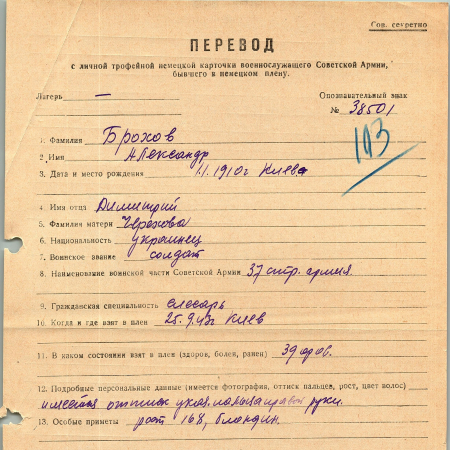 Сов. секретно
ПЕРЕВОД
с личной трофейной немецкой карточки военнослужащего Советской Армии,
бывшего в немецком плену.
Лагерь —
Опознавательный знак
№ 38501
193
1. Фамилия Брохов
2. Имя Александр
3. Дата и место рождения 1.1.1910г Киева
4. Имя отца Димитрий
5. Фамилия матери
6. Национальность украинец
7. Воинское звание солдат
8. Наименование воинской части Советской Армии 37 стр. армия.
9. Гражданская специальность слесарь
10. Когда и где взят в плен 25.9.43г Киев
11. В каком состоянии взят в плен (здоров, болен, ранен) Здоров.
12. Подробные персональные данные (имеется фотография, оттиск пальцев, рост, цвет волос)
имеется оттиск указ. пальца правой руки.
13. Особые приметы рост 168, блондин.